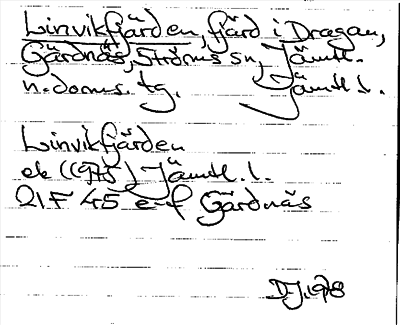 Linvikfjärden, fjärd i Dragan,
Gärdnäs, Ströms sn, Jämtl.
n. doms. tg. Jämtl. l.
Linvikfjärden
ek (1975) Jämtl. l.
21F 45 e-f Gärdnäs
DJ. 1978